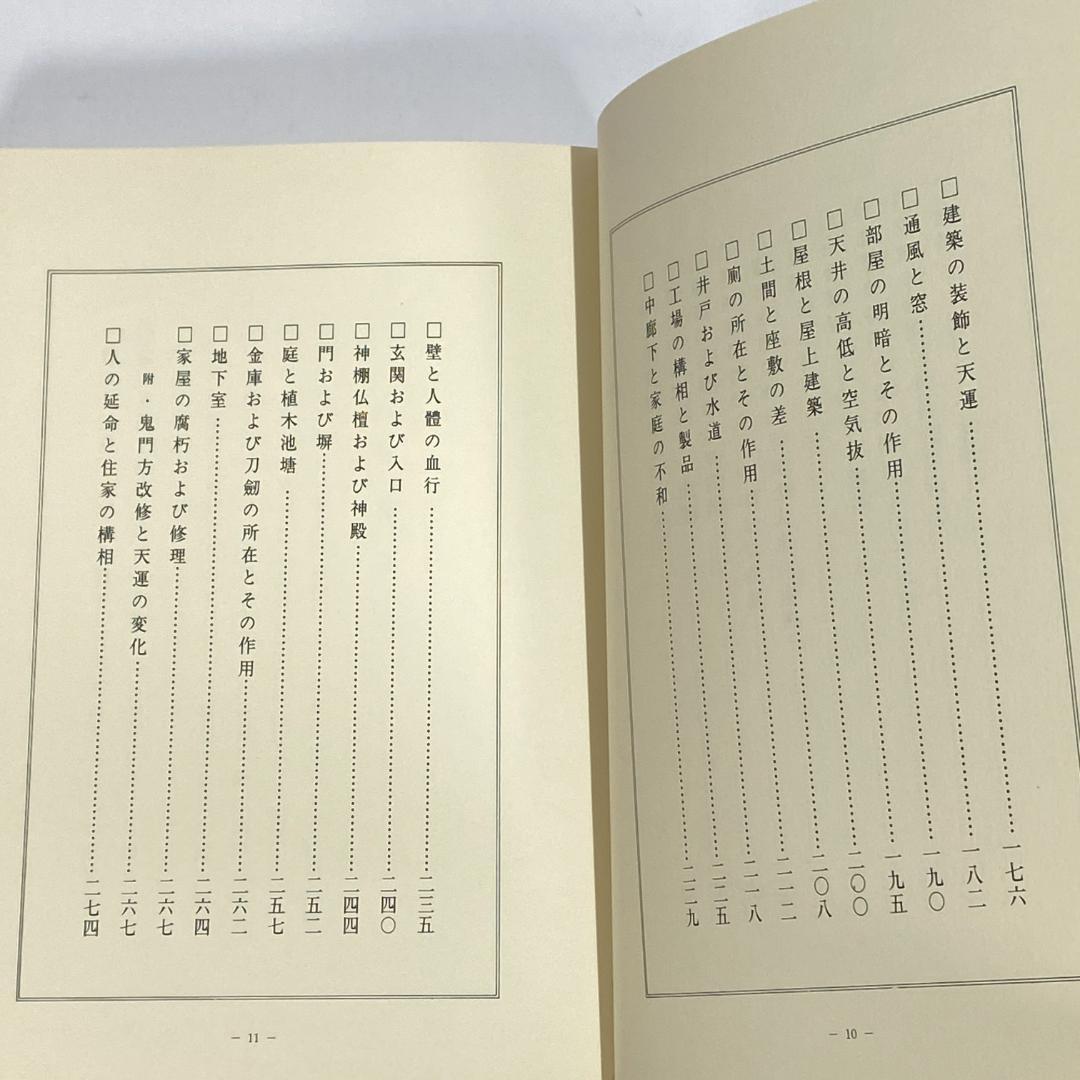 □建築の装飾と天運……………一七六
□通風と窓……………一八二
□部屋の明暗とその作用……………一九〇
□天井の高低と空気抜……………一九五
□屋根と屋上建築……………二〇〇
□土間と座敷の差……………二〇八
□廁の所在とその作用……………二一二
□井戸および水道……………二一八
□工場の構相と製品……………二二五
□中廊下と家庭の不和……………二二九
― 10 ―
□壁と人體の血行……………二三五
□玄関および入口……………二四〇
□神棚仏檀および神殿……………二四四
□門および塀……………二五二
□庭と植木池塘……………二五七
□金庫および刀劒の所在とその作用……………二六二
□地下室……………二六四
□家屋の腐朽および修理……………二六七
附・鬼門方改修と天運の変化……………二六七
□人の延命と住家の構相……………二七四
― 11 ―